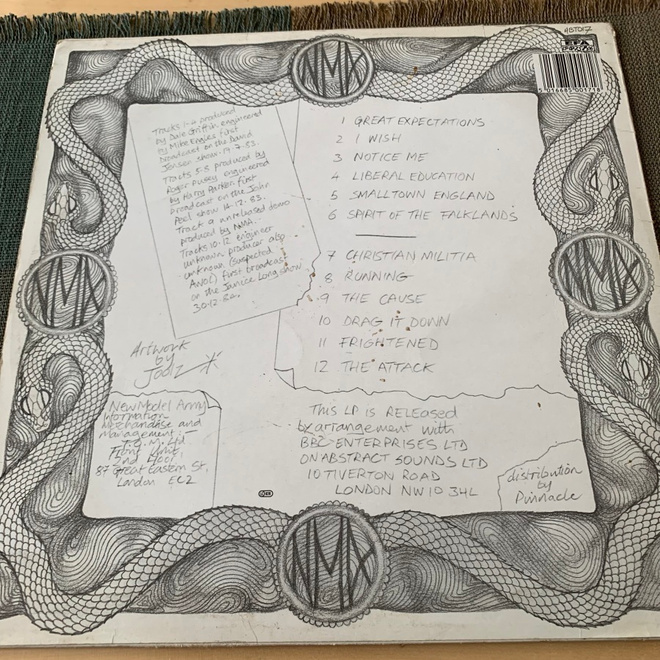 NMA
ABT017
5 016685 001718
Tracks 1-4 produced
by Dale Griffin engineered
by Mike Engles first
broadcast on the David
Jensen show. 19.7.83.
Tracks 5-8 produced by
Roger Pusey engineered
by Harry Parker first
broadcast on the John
Peel show 14.12.83.
Track 9 unreleased demo
produced by NMA.
Tracks 10-12 engineer
unknown, producer also
unknown (suspected
ANOL) first broadcast
on the Janice Long show
30.12.84.
1 GREAT EXPECTATIONS
2 I WISH
3 NOTICE ME
4 LIBERAL EDUCATION
5 SMALLTOWN ENGLAND
6 SPIRIT OF THE FALKLANDS
7 CHRISTIAN MILITIA
8 RUNNING
9 THE CAUSE
10 DRAG IT DOWN
11 FRIGHTENED
12 THE ATTACK
NMA
NMA
Artwork
by
Joolz
New Model Army
Information
Merchandise and
Management.
Ltd
Front Unit
2nd Floor
87 Great Eastern St,
London EC2
THIS LP IS RELEASED
by arrangement with
BBC ENTERPRISES LTD
ON ABSTRACT SOUNDS LTD
10 TIVERTON ROAD
LONDON NW10 3HL
distribution
by
Pinnacle
NMA